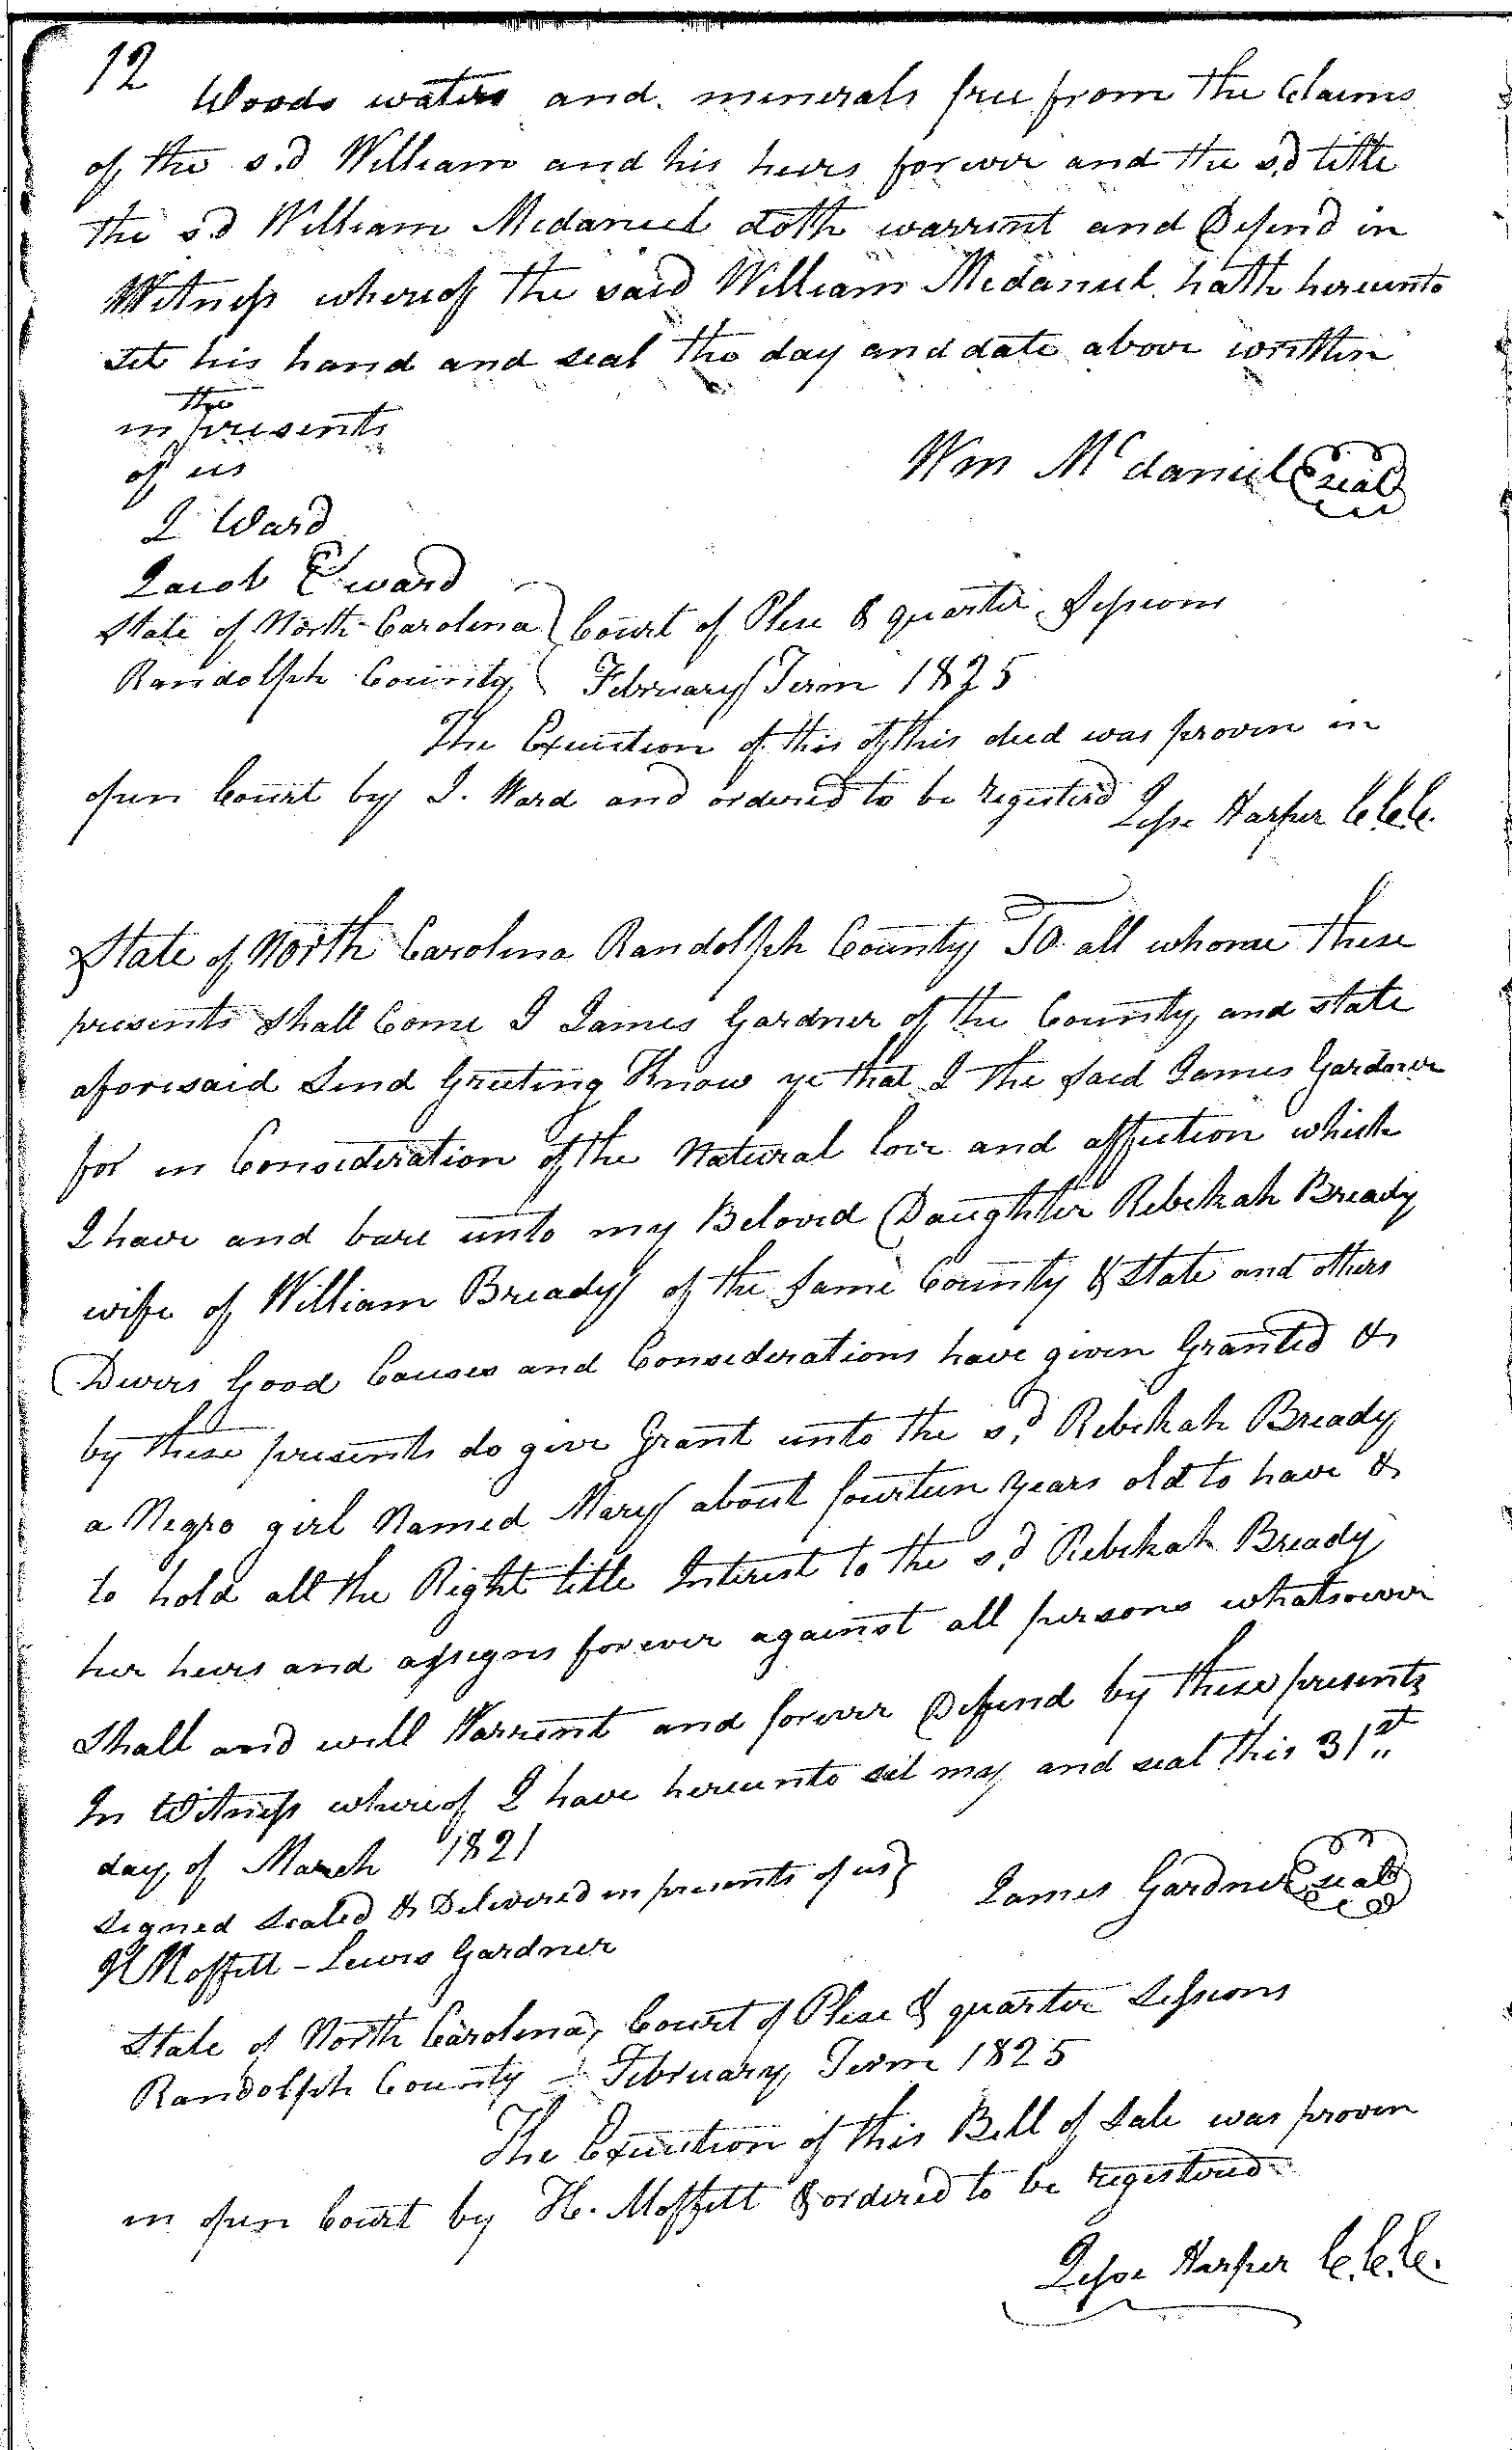 12
Woods waters and minerals free from the Claims
of the s.d William and his heirs forever and the s.d title
the s.d William Mcdaniel doth warrent and Defend in
Witness whereof the said William Mcdaniel hath hereunto
Set his hand and seal the day and date above written
in the presents
of us
Wm Mcdaniel seal
J Ward
Jacob C ward
State of North Carolina Court of Plese & quarter Sessions
Randolph County February Term 1825
The Execution of this of this deed was proven in
open Court by J. Ward and ordered to be registerd
Jesse Harper C.C.C.
State of North Carolina Randolph County To all whome these
presents Shall Come I James Gardner of the County and state
aforesaid Send Greeting Know ye that I the Said James Gardner
for in Consideration of the Natural love and affection which
I have and bare unto my Beloved Daughter Rebekah Bready
wife of William Bready of the Same County & State and others
Divers Good Causes and Considerations have given Granted &
by these presents do give Grant unto the s.d Rebekah Bready
a Negro girl Named Mary about fourteen years old to have &
to hold all the Right title Interest to the s.d Rebekah Bready
her heirs and assigns forever against all persons whatsoever
Shall and will Warrent and forever Defend by these presents
In Witness whereof I have hereunto set my and seal this 31st
day of March 1821
Signed Sealed & Delivered in presents of us
James Gardner seal
H Moffett - Lewis Gardner
State of North Carolina, Court of Plese & quarter Sessions
Randolph County - February Term 1825
The Execution of this Bill of Sale was proven
in open Court by H. Moffett & ordered to be registered
Jesse Harper C.C.C.